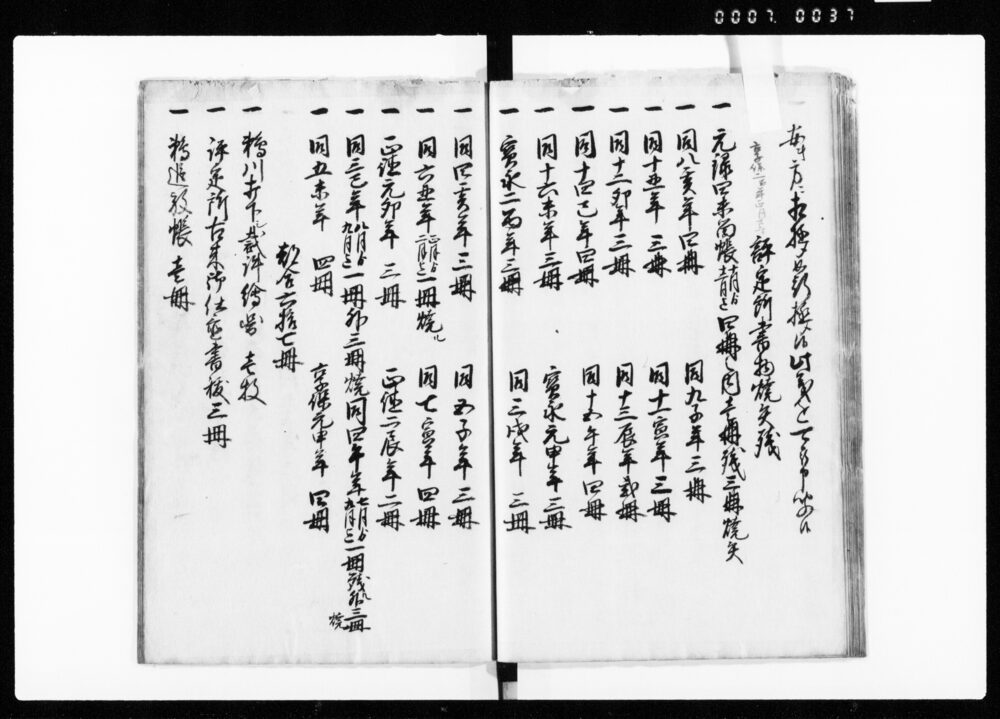 0007 0037
評定所書物焼失残
一 元禄四未留帳 四冊之内壱冊残三冊焼失
一 同八亥年四冊 同九子年三冊
一 同十丑年三冊 同十一寅年三冊
一 同十二卯年三冊 同十三辰年貳冊
一 同十四巳年四冊 同十五午年四冊
一 同十六未年三冊 宝永元申年三冊
一 宝永二酉年三冊 同三戌年三冊
一 同四亥年三冊 同五子年三冊
一 同六丑年正月より二月迄一冊焼 同七寅年四冊
一 正徳元卯年三冊 正徳二辰年二冊
一 同三巳年八月より九月迄一冊外三冊焼 同四午年七月より九月迄一冊残外三冊焼
一 同五未年四冊 享保元申年四冊
都合六拾七冊
一 裁許絵図 壱枚
一 評定所古来御仕置書抜三冊
一 追放帳 壱冊